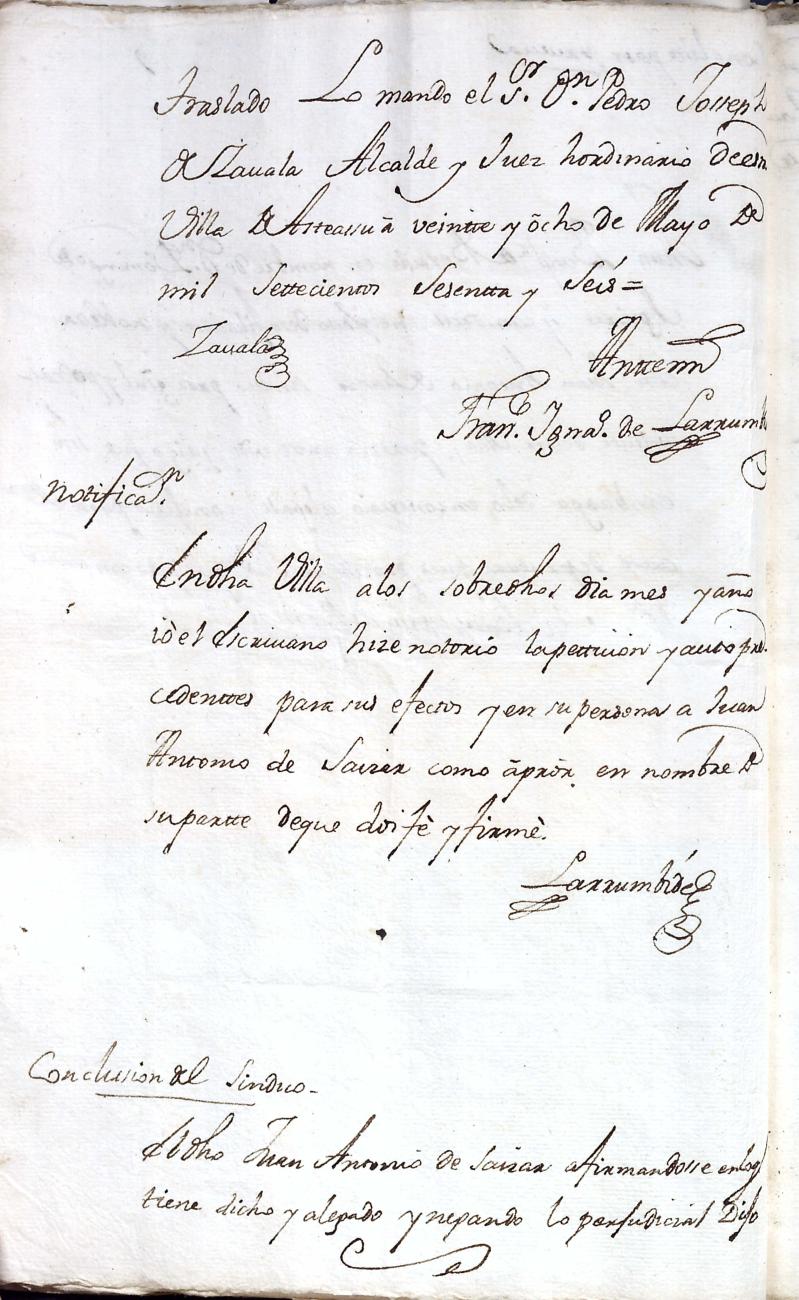 traslado Lo mando el S.or D.n Pedro Joseph
de Zauala Alcalde y Juez hordinario de esta
Villa de Asteassu â veintte y ôcho de Mayo de
mil settecientos sesentta y seis =
Zauala
Antte mi
Fran.co Ygna.o de Larrumb
Notifica.n
En dha Villa a los sobredhos dia mes y año
iô el Escriuano hize notorio la petticion y auto pre
cedenttes para sus efectos y en su persona a Juan
Antonio de Saizar como âprôr. en nombre de
su partte de que doi fè y firmè.
Larrumbide
Conclusion del Sindico -
El dho Juan Antonio de Saizar afirmandosse en loq
tiene dicho y alegado y negando lo perjudicial Dijo